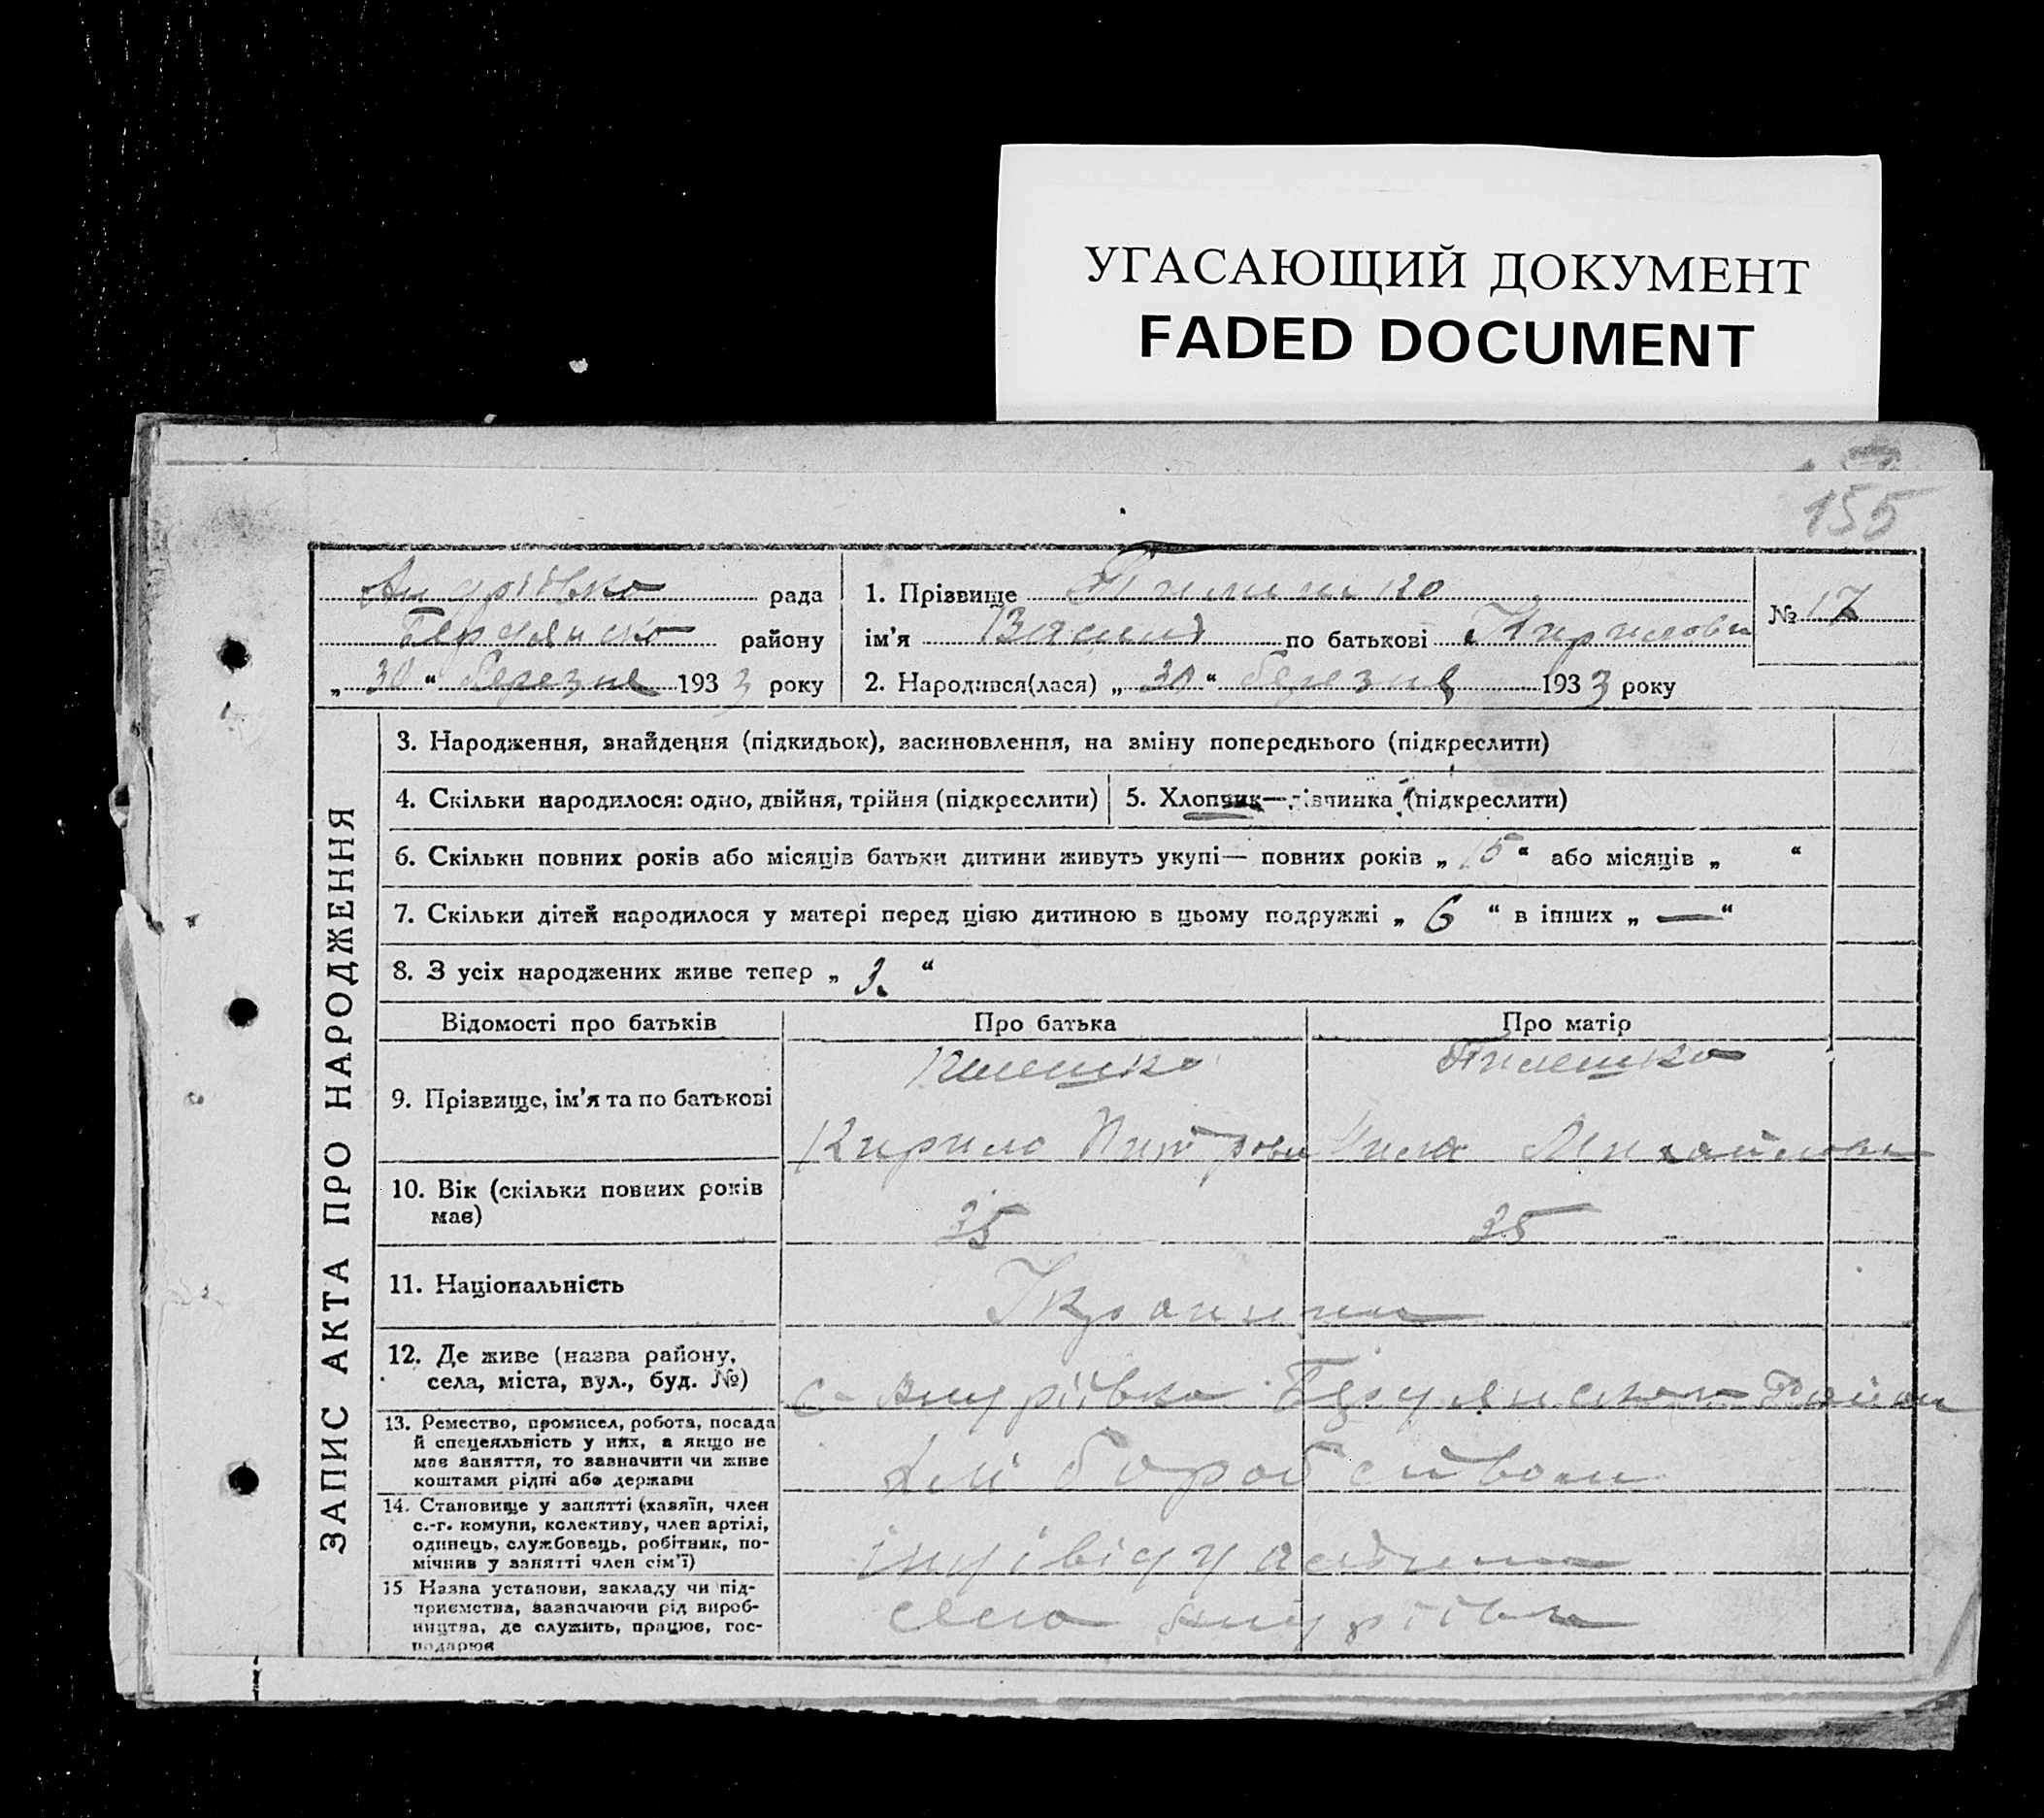 УГАСАЮЩИЙ ДОКУМЕНТ
FADED DOCUMENT
155
ЗАПИС АКТА ПРО НАРОДЖЕННЯ
Андріївка рада
Бердянско району
„ 30 “ березня 1933 року
1. Прізвище
№ 17
ім’я Василь по батькові Кирилови
2. Народився(лася) „ 30 “ березня 1933 року
3. Народження, знайдення (підкидьок), засиновлення, на зміну попереднього (підкреслити)
4. Скільки народилося: одно, двійня, трійня (підкреслити)
5. Хлопчик—дівчинка (підкреслити)
6. Скільки повних років або місяців батьки дитини живуть укупі— повних років „ 15 “ або місяців „ “
7. Скільки дітей народилося у матері перед цією дитиною в цьому подружжі „ 6 “ в інших „ — “
8. З усіх народжених живе тепер „ 3. “
Відомості про батьків
Про батька
Про матір
9. Прізвище, ім’я та по батькові
Кирило
10. Вік (скільки повних років
має)
35
35
11. Національність
12. Де живе (назва району,
села, міста, вул., буд. №)
с. Андріївка Район
13. Ремество, промисел, робота, посада
й спецеяльність у них, а якщо не
має заняття, то зазначити чи живе
коштами рідні або держави
14. Становище у занятті (хазяїн, член
с.-г. комуни, колективу, член артілі,
одинець, службовець, робітник, по-
мічник у занятті член сім’ї)
15 Назва установи, закладу чи під-
приємства, зазначаючи рід вироб-
ництва, де служить, працює, гос-
подарює
село Андріївка